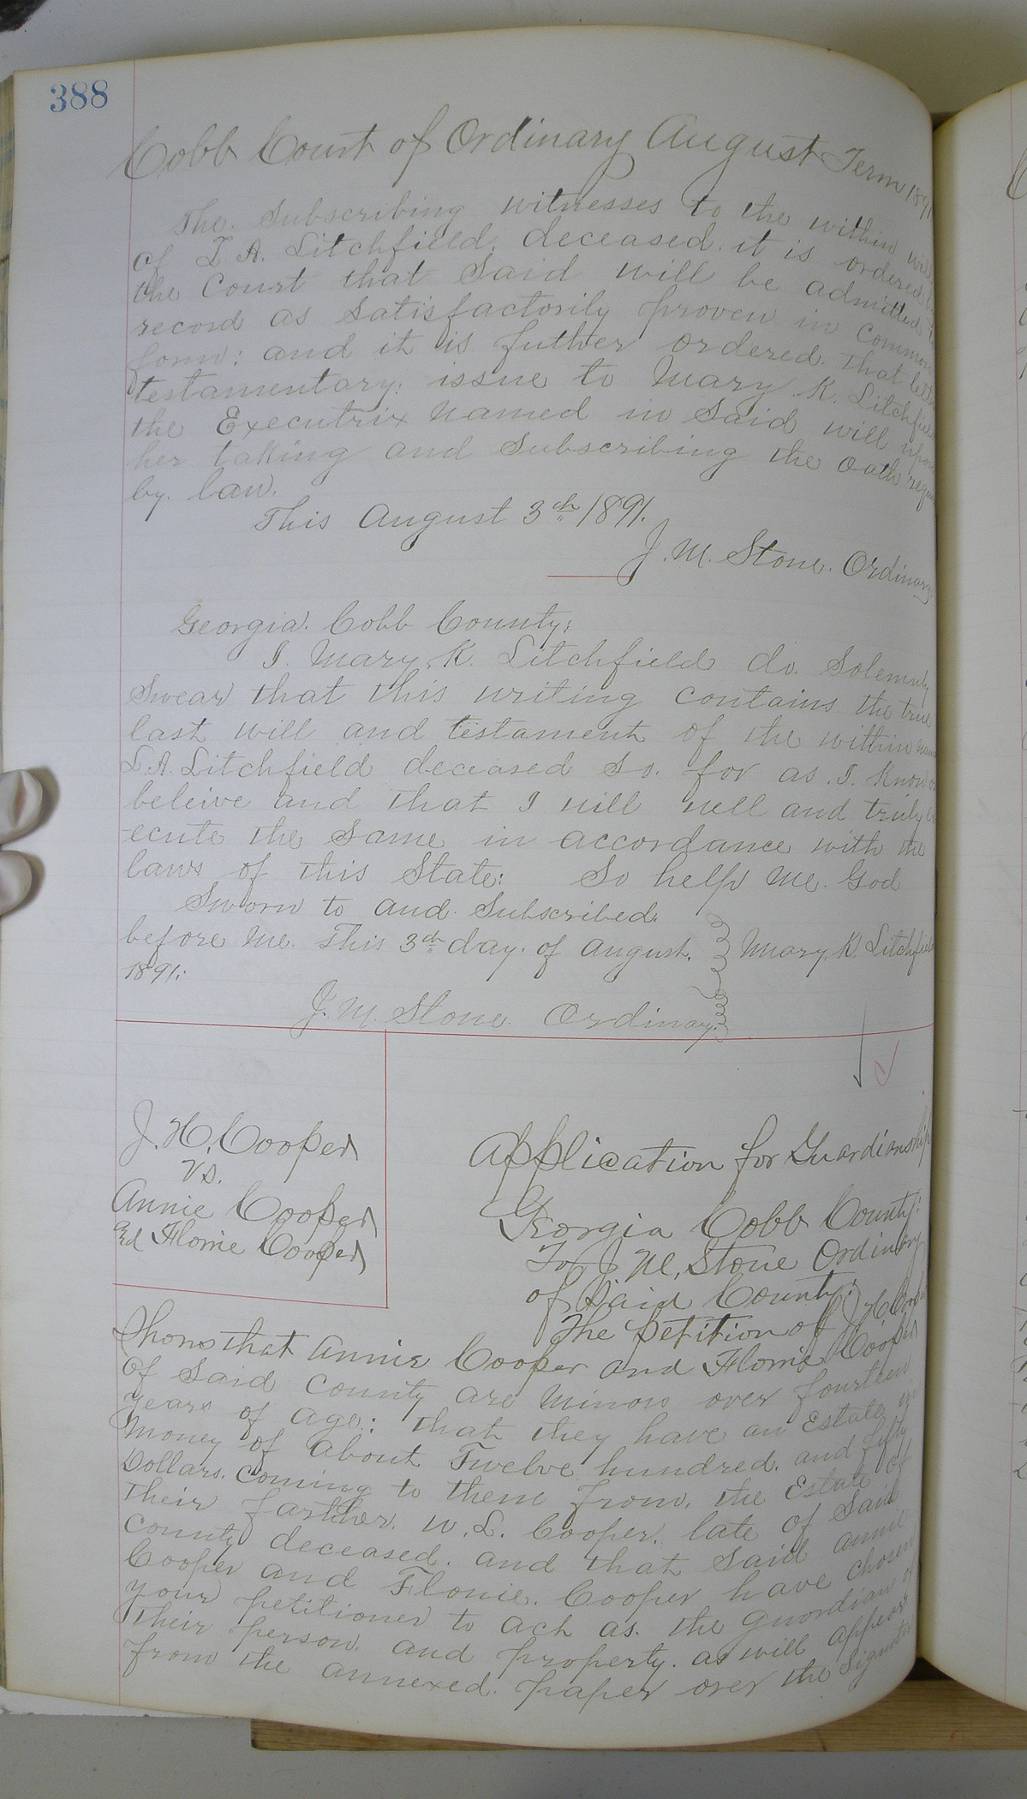 388
Cobb Court of Ordinary August Term 1891
The Subscribing witnesses to the within will
of L. A. Litchfield, deceased. it is ordered by
the Court that Said will be admitted to
record as Satisfactorily proven in common
form: and it is futher ordered. that
testamentary. issue to Mary. K. Litchfield
the Executrix named in Said will upon
her taking and Subscribing the oath
by. law.
This August 3th 1891.
J. M. Stone. Ordinary
Georgia. Cobb County:
I. Mary. K. Litchfield do. Solemnly
Swear that this writing contains the true
last will and testament of the within
L. A. Litchfield deceased So. far as. I. Know or
beleive and that I will well and truly ex
-ecute the Same in accordance with the
laws of this State: So help Me. God
Sworn to and. Subscribed.
before Me. This 3th day. of August. Mary. K. Litchfield
1891:
J. M. Stone. Ordinary.
J. H. Cooper
vs.
Annie Cooper
and Flonie Cooper
Application for Guardianship
Georgia Cobb County:
To J. M. Stone Ordinary
of Said County:
The petition of J. H. Cooper
Shows that Annie Cooper and Flonie Cooper
of Said County are Minors over fourthen
years of age: that they have an Estate in
Money of about Twelve hundred. and fifty
Dollars. coming to them from. the Estate of
their farther. W. L. Cooper. late of Said
County deceased. and that Said Annie
Cooper and Flonie. Cooper have chosen
your petitioner to act as. the guardian of
their person and property. as will appear
from the annexed. paper over the